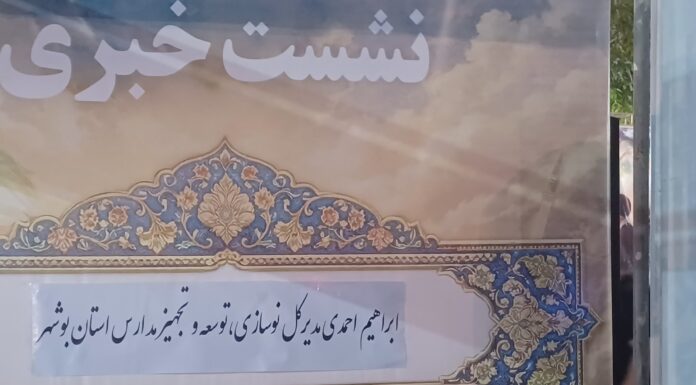 نشست خبری
ابراهیم احمدی مدیرکل نوسازی، توسعه و تجهیز مدارس استان بوشهر